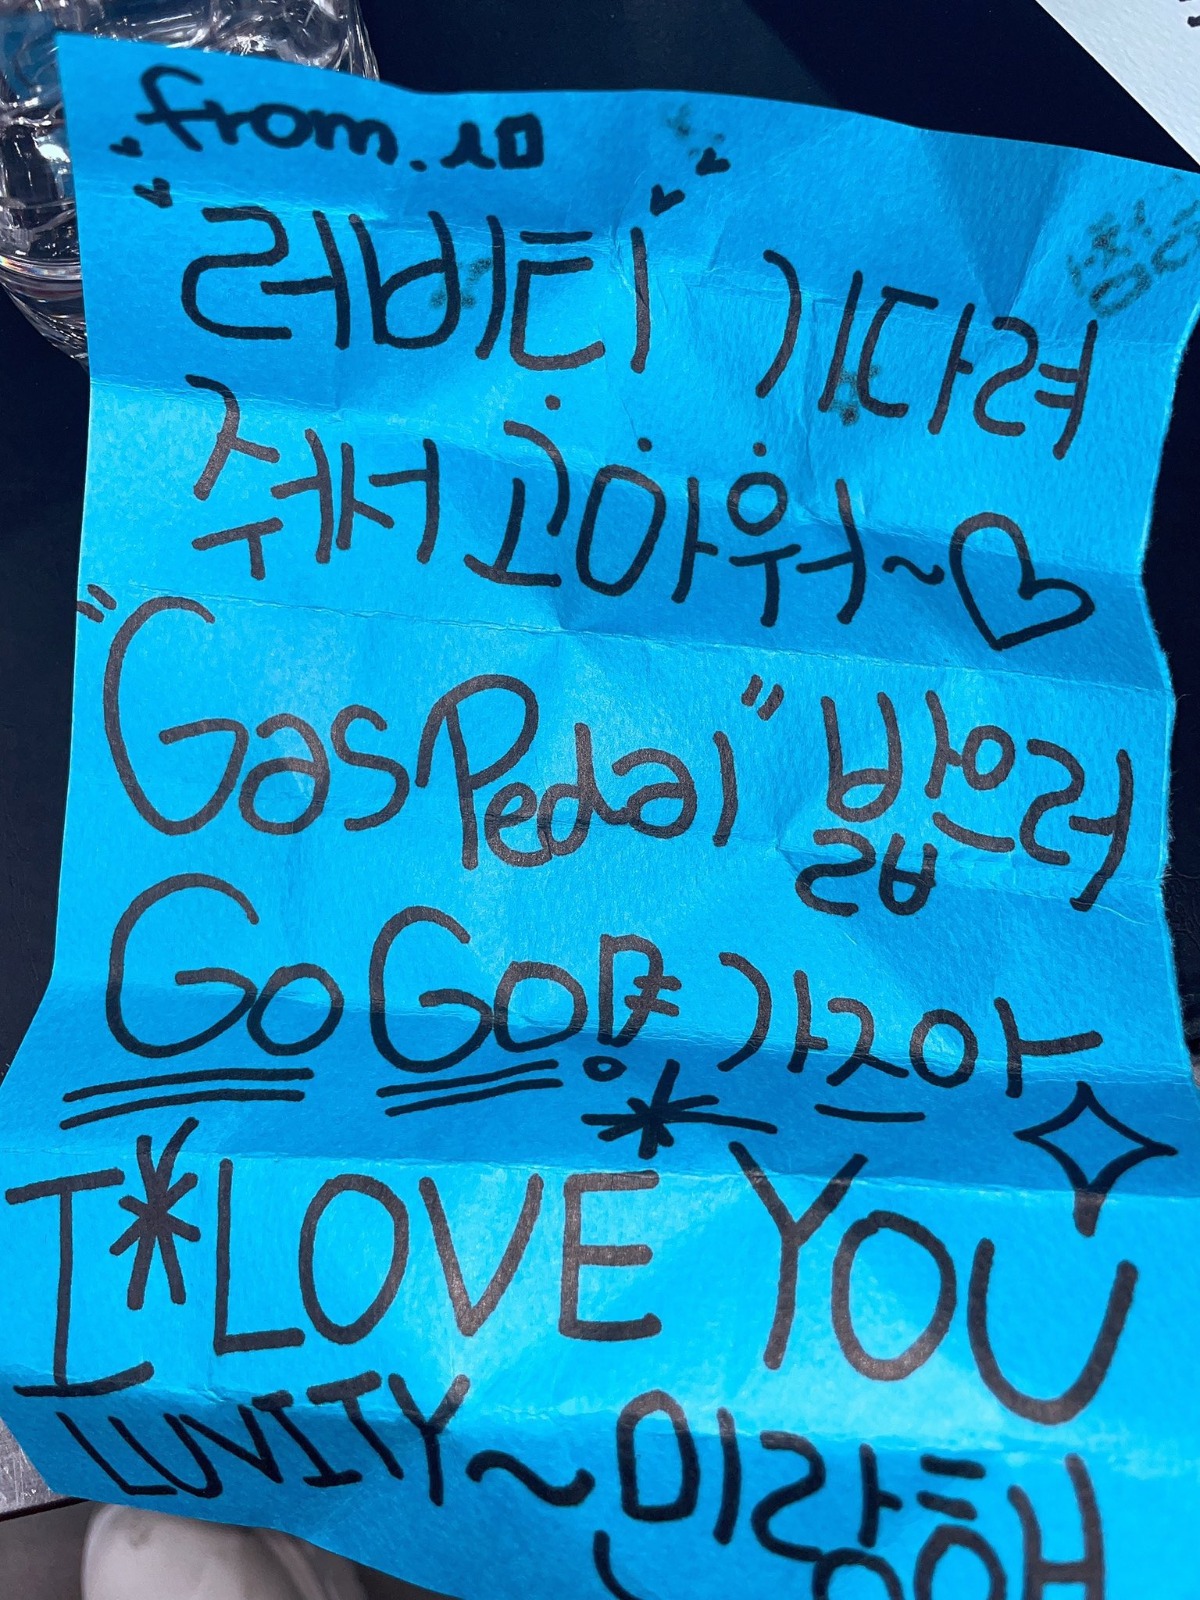 from. ㅅㅁ
러비티 기다려
줘서 고마워~♡
"Gas Pedal" 밟으러
Go Go 가즈아
I*LOVE*YOU
LUVITY~